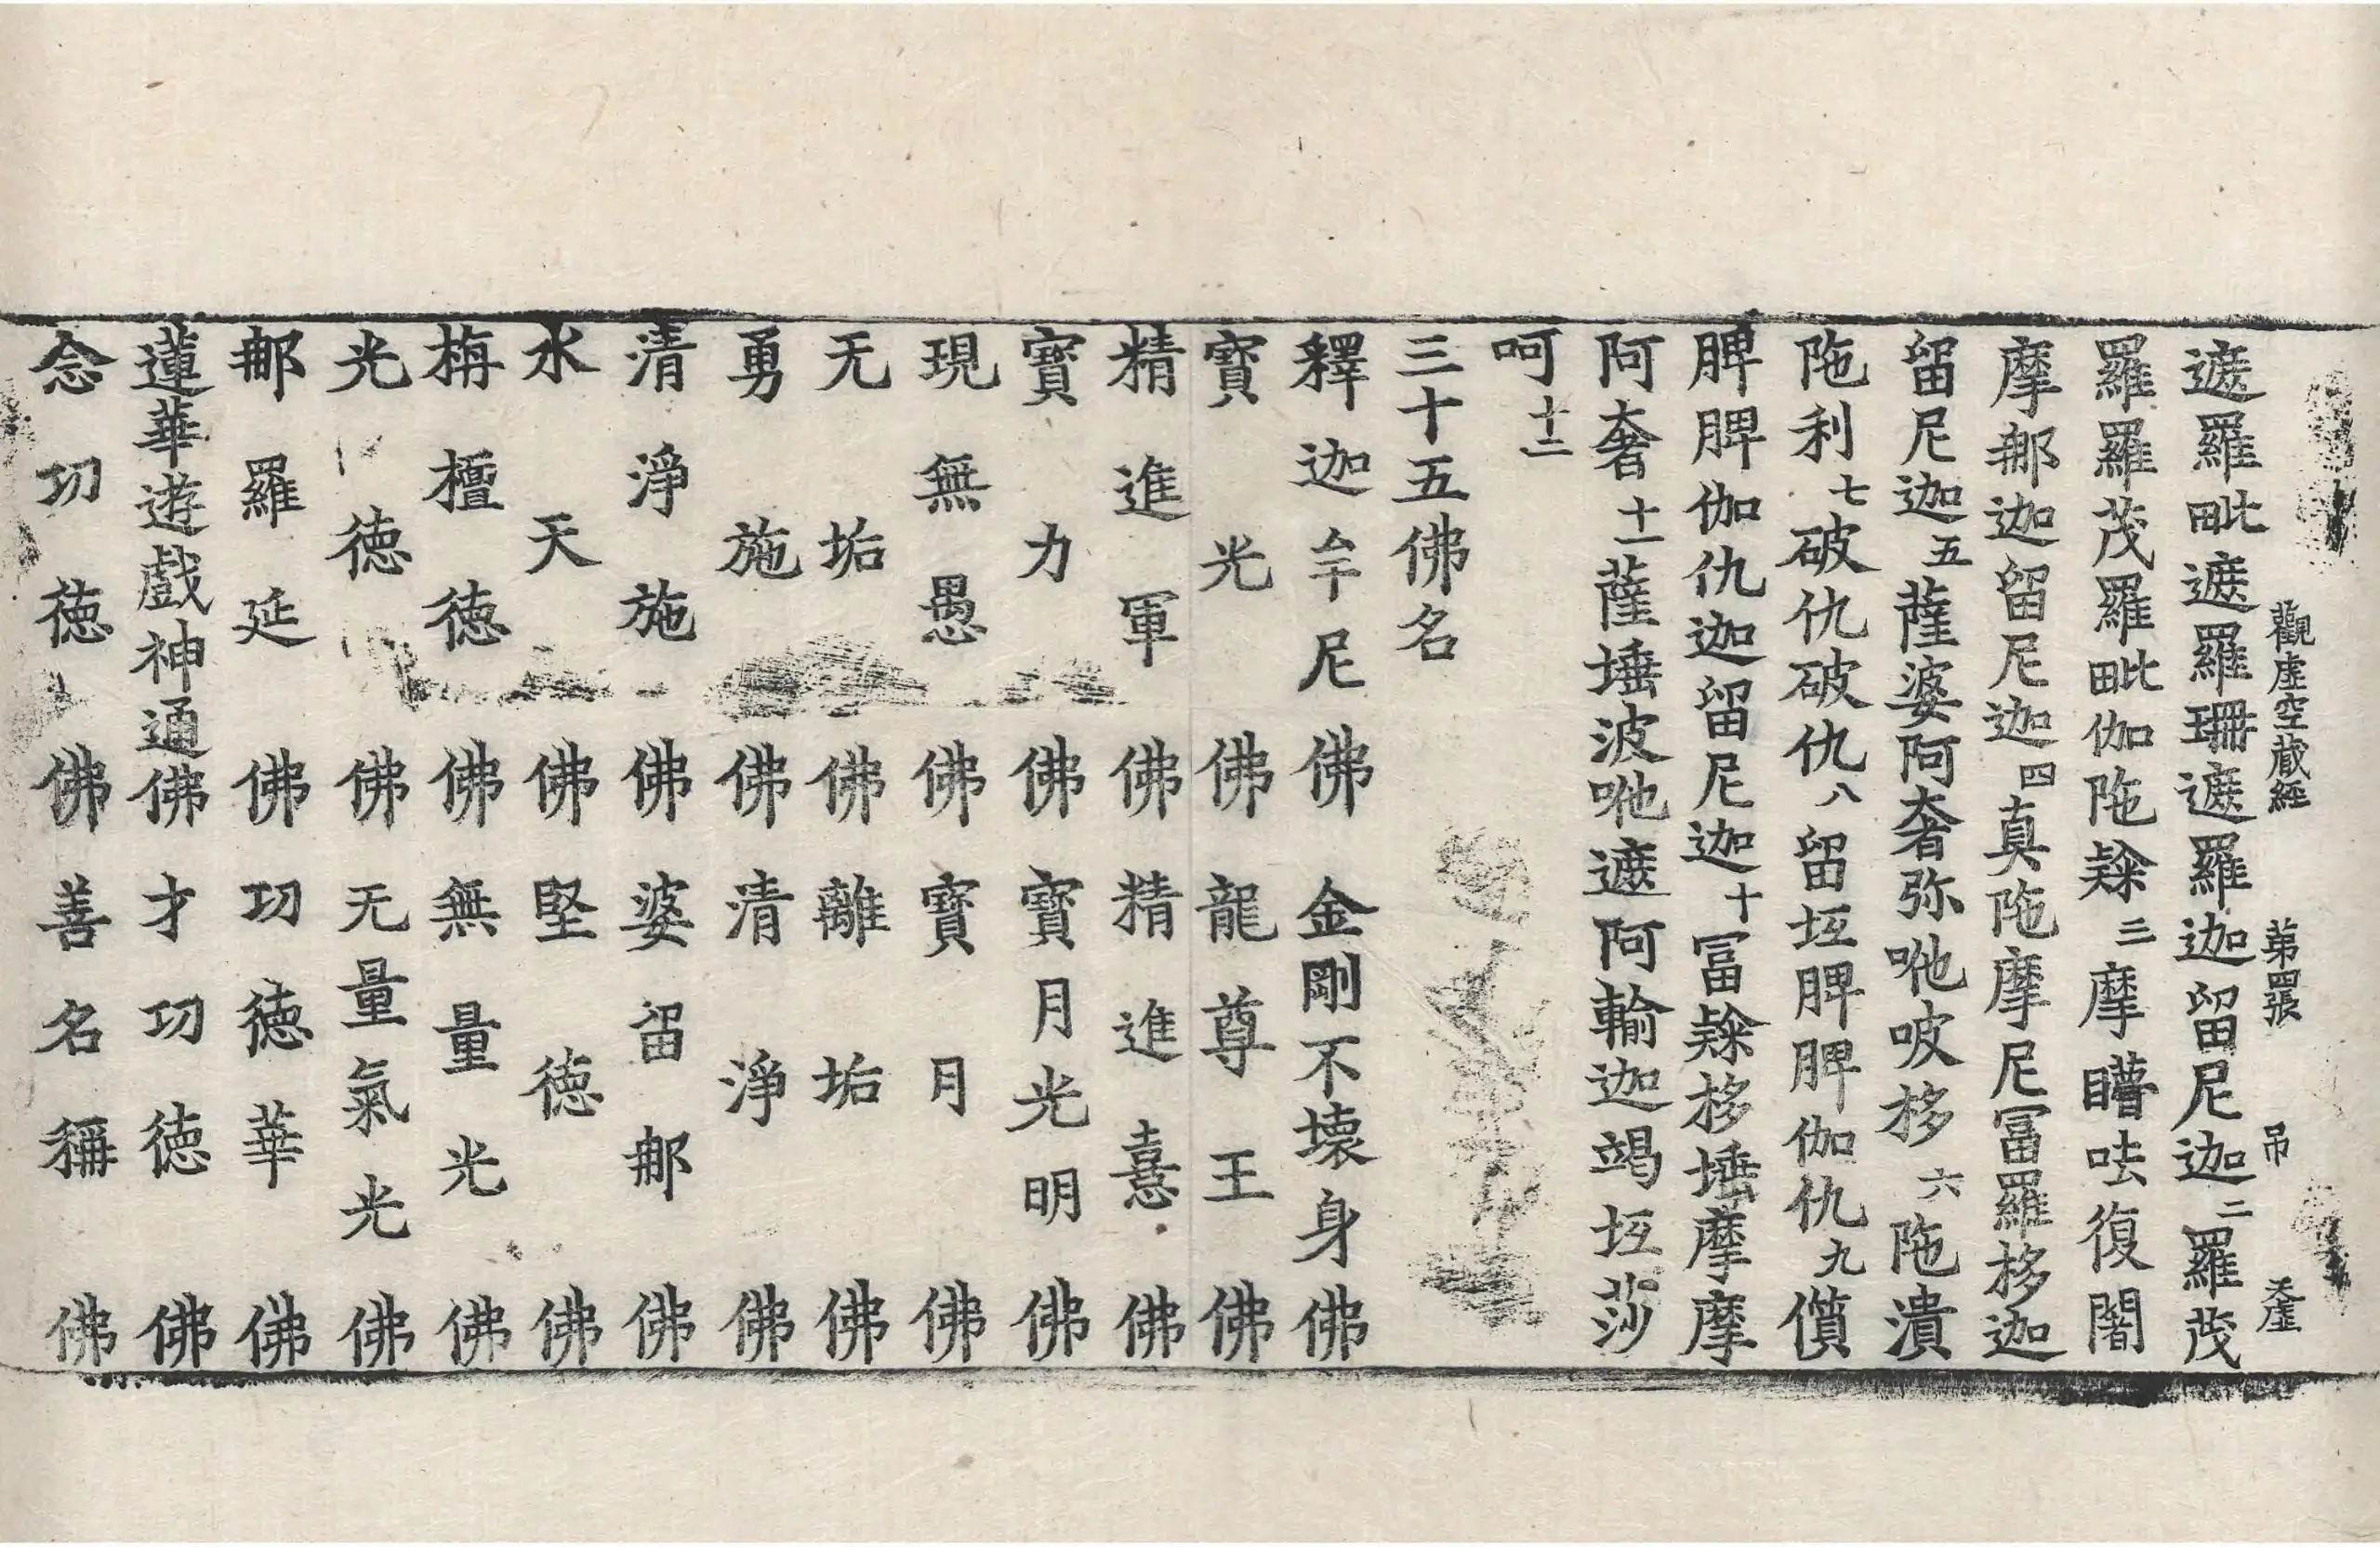 觀虛空藏經 第四張 吊 天𡉄
遮羅毗遮羅珊遮羅迦留尼迦二羅茂
羅羅茂羅毗伽陁䟽三摩矒呿復闍
摩那迦留尼迦四真陁摩尼冨羅移迦
留尼迦五薩婆阿奢弥吔吺移六陁瀆
陁利七破仇破仇八留垣脾脾伽仇九儥
脾脾伽仇迦留尼迦十冨䟽移埵摩摩
阿奢十一薩埵波吔遮阿輸迦竭垣莎
呵十二
三十五佛名
釋迦牟尼佛 金剛不壞身佛
寶光佛 龍尊王佛
精進軍佛 精進憙佛
寶力佛 寶月光明佛
現無愚佛 寶月佛
无垢佛 離垢佛
勇施佛 清淨佛
清淨施佛 婆留那佛
水天佛 堅德佛
栴檀德佛 無量光佛
光德佛 无量氣光佛
那羅延佛 功德華佛
蓮華遊戲神通佛 才功德佛
念功德佛 善名稱佛